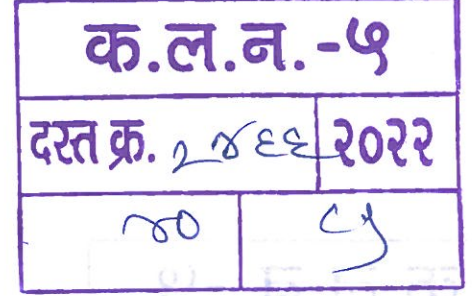 क.ल.न.-५
दस्त क्र. २४६६ २०२२
४० ८५